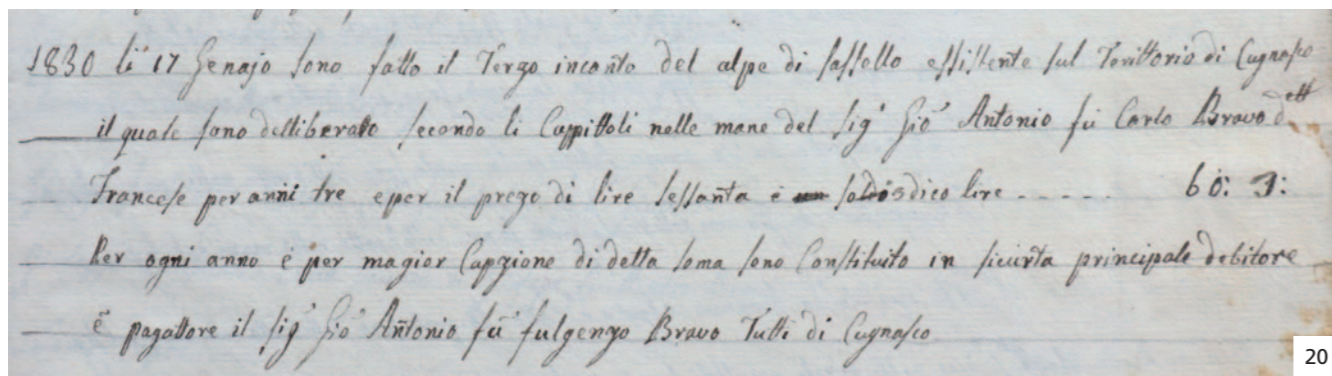 1830 li 17 Genajo sono fatto il Terzo incanto del alpe di Sassello essistente sul Teritorio di Cugnasco
il quale sono delliberatto secondo li Cappittoli nelle mane del Sigr Gio Antonio fù Carlo Bravo dett
Francese per anni tre e per il prezo di lire sessanta è soldi dico lire ..... 60: 3:
Per ogni anno è per magior Capzione di detta soma sono Constituito in sicurta principale debitore
è pagattore il Sigr Gio Antonio fù fulgenzo Bravo Tutti di Cugnasco
20